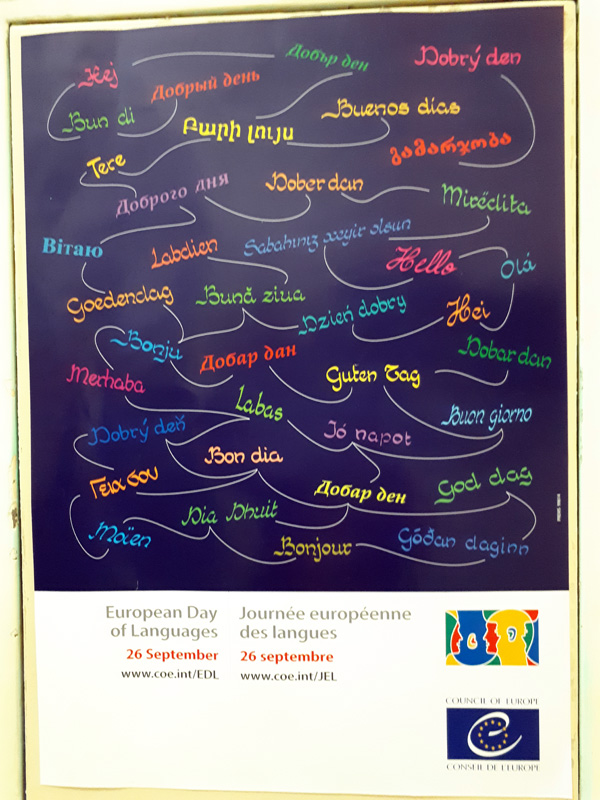 Добър ден
Dobrý den
Hej
Добрый день
Bun di
Buenos días
Բարի լույս
გამარჯობა
Tere
Доброго дня
Dober dan
Mirëdita
Вітаю
Labdien
Sabahınız xeyir olsun
Hello
Olá
Goedendag
Bună ziua
Dzień dobry
Hei
Bonju
Добар дан
Dobar dan
Merhaba
Guten Tag
Labas
Buon giorno
Dobrý deň
Jó napot
Bon dia
Γεια σου
Добар ден
God dag
Dia Dhuit
Moïen
Bonjour
Góðan daginn
European Day
of Languages
26 September
www.coe.int/EDL
Journée européenne
des langues
26 septembre
www.coe.int/JEL
COUNCIL OF EUROPE
CONSEIL DE L'EUROPE